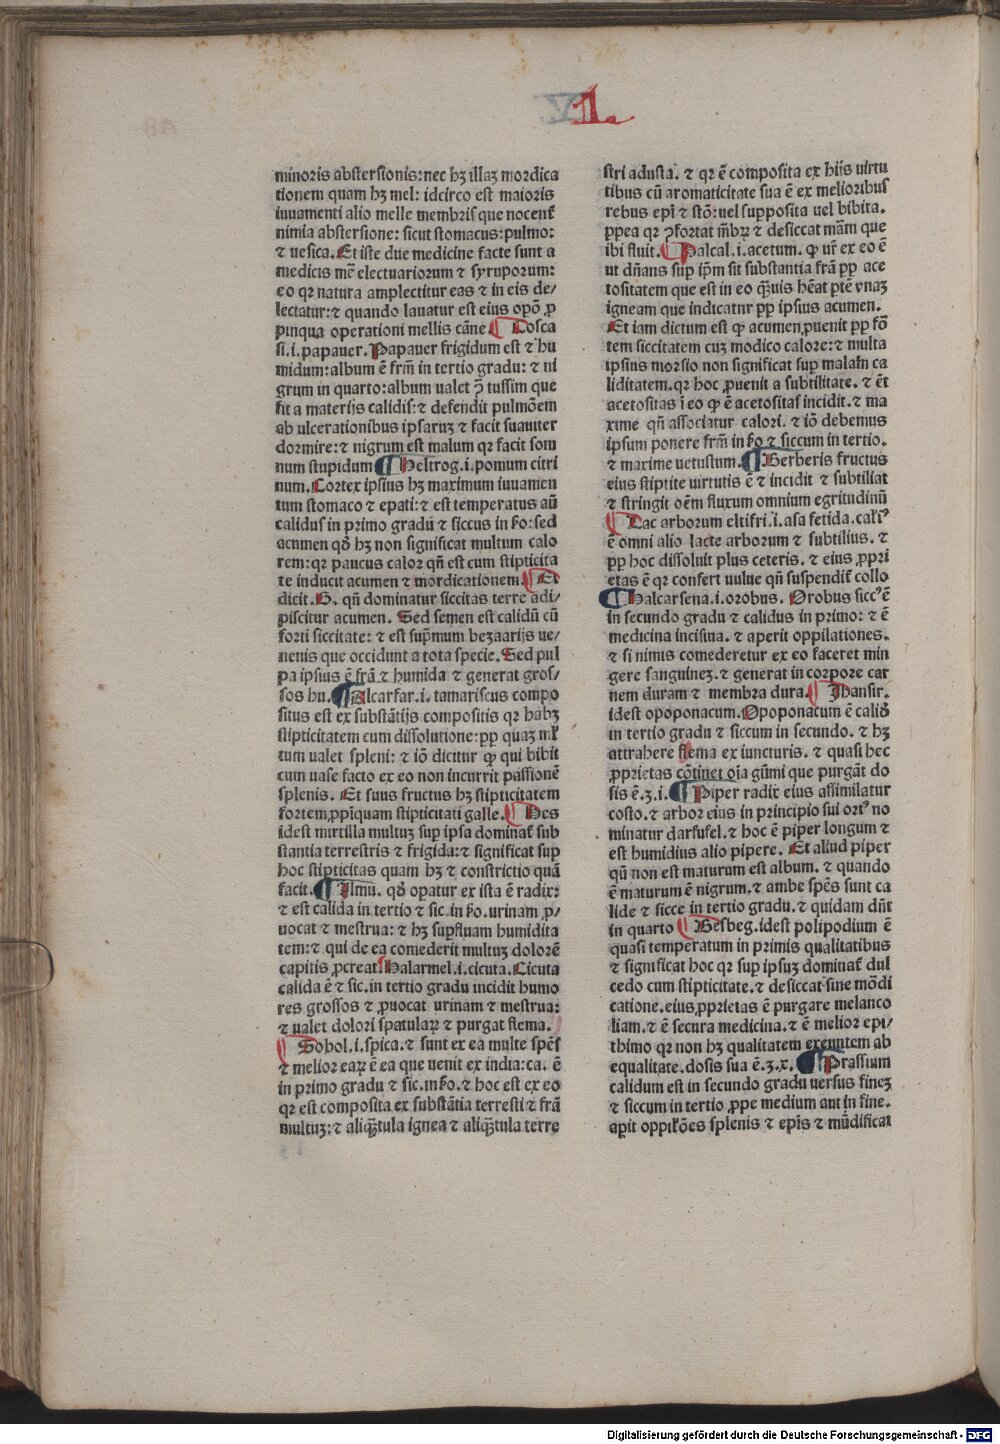 VI.
minoris abstersionis: nec hꝫ illaꝫ mordica
tionem quam hꝫ mel: idcirco est maioris
iuuamenti alio melle membris que nocent᷑
nimia abstersione: sicut stomacus: pulmo:
⁊ uesica. Et iste due medicine facte sunt a
medicis mē electuariorum ⁊ syruporum:
eo qꝛ natura amplectitur eas ⁊ in eis de/
lectatur: ⁊ quando lauatur est eius opō ꝓ
pinqua operationi mellis cāne ¶ Cosca
si .i. papauer. Papauer frigidum est ⁊ hu
midum: album ē frm̄ in tertio gradu: ⁊ ni
grum in quarto: album ualet ꝯ̄ tussim que
fit a materijs calidis: ⁊ defendit pulmōem
ab ulcerationibus ipsaruꝫ ⁊ facit suauiter
dormire: ⁊ nigrum est malum qꝛ facit som
num stupidum ¶ Heltrog .i. pomum citri
num. Cortex ipsius hꝫ maximum iuuamen
tum stomaco ⁊ epati: ⁊ est temperatus aū
calidus in primo gradu ⁊ siccus in ẜo: sed
acumen qḋ hꝫ non significat multum calo
rem: qꝛ paucus calor qn̄ est cum stipticita
te inducit acumen ⁊ mordicationem. ¶ Et
dicit .G. qn̄ dominatur siccitas terre adi/
piscitur acumen. Sed semen est calidū cū
forti siccitate: ⁊ est sup̄mum bezaarijs ue/
nenis que occidunt a tota specie. Sed pul
pa ipsius ē frā ⁊ humida ⁊ generat gros/
sos hu. ¶ Alcarfar .i. tamariscus compo
situs est ex substātijs compositis qꝛ habꝫ
stipticitatem cum dissolutione: ꝓp quaꝫ ml̄
tum ualet spleni: ⁊ iō dicitur ꝙ qui bibit
cum uase facto ex eo non incurrit passionē
splenis. Et suus fructus hꝫ stipticitatem
fortem, ꝓpīquam stipticitati galle. ¶ Hes
idest mirtilla multuꝫ sup ipsa dominat᷑ sub
stantia terrestris ⁊ frigida: ⁊ significat sup
hoc stipticitas quam hꝫ ⁊ constrictio quā
facit. ¶ Ilmu. qḋ opatur ex ista ē radix:
⁊ est calida in tertio ⁊ sic. in ẜo. urinam ꝓ/
uocat ⁊ mestrua: ⁊ hꝫ supfluam humidita
tem: ⁊ qui de ea comederit multuꝫ dolorē
capitis ꝓcreat. Halarmel .i. cicuta. Cicuta
calida ē ⁊ sic. in tertio gradu incidit humo
res grossos ⁊ ꝓuocat urinam ⁊ mestrua:
⁊ ualet dolori spatulaꝝ ⁊ purgat flema.
¶ Sobol .i. spica. ⁊ sunt ex ea multe spēs
⁊ melior eaꝝ ē ea que uenit ex india: ca. ē
in primo gradu ⁊ sic. in ẜo. ⁊ hoc est ex eo
qꝛ est composita ex substātia terresti ⁊ frā
multuꝫ: ⁊ aliq̄tula ignea ⁊ aliq̄tula terre
stri adusta. ⁊ qꝛ ē composita ex hijs uirtu
tibus cū aromaticitate sua ē ex melioribus
rebus epi ⁊ stō: uel supposita uel bibita.
ꝓpea qꝛ ꝯfortat m̄bꝝ ⁊ desiccat mām que
ibi fluit. ¶ Halcal .i. acetum. ꝙ ur̄ ex eo ē
ut dn̄ans sup ip̄m sit substantia frā ꝓp ace
tositatem que est in eo q̄uis hēat ptē unaꝫ
igneam que indicatur ꝓp ipsius acumen.
Et iam dictum est ꝙ acumen ꝓuenit ꝓp fō
tem siccitatem cuꝫ modico calore: ⁊ multa
ipsius morsio non significat sup malam ca
liditatem. qꝛ hoc ꝓuenit a subtilitate. ⁊ ēt
acetositas ī eo ꝙ ē acetositas incidit. ⁊ ma
xime qn̄ associatur calori. ⁊ iō debemus
ipsum ponere frm̄ in ẜo ⁊ siccum in tertio.
⁊ maxime uetustum. ¶ Berberis fructus
eius stiptite uirtutis ē ⁊ incidit ⁊ subtiliat
⁊ stringit oēm fluxum omnium egritudinū
¶ Lac arborum eltifri .i. asa fetida. cali
ē omni alio lacte arborum ⁊ subtilius. ⁊
ꝓp hoc dissoluit plus ceteris. ⁊ eius ꝓpri
etas ē qꝛ confert uulue qn̄ suspendit᷑ collo
¶ Halcarsena .i. orobus. Orobus sicc᷒ ē
in secundo gradu ⁊ calidus in primo: ⁊ ē
medicina incisina. ⁊ aperit oppilationes.
⁊ si nimis comederetur ex eo faceret min
gere sanguineꝫ. ⁊ generat in corpore car
nem duram ⁊ membra dura. ¶ Ihansir.
idest opoponacum. Opoponacum ē calid᷒
in tertio gradu ⁊ siccum in secundo. ⁊ hꝫ
attrahere flema ex iuncturis. ⁊ quasi hec
ꝓprietas cōtinet oīa gūmi que purgāt do
sis ē .ʒ.i. ¶ Piper radix eius assimilatur
costo. ⁊ arbor eius in principio sui ort᷒ no
minatur darfufel. ⁊ hoc ē piper longum ⁊
est humidius alio pipere. Et aliud piper
qū non est maturum est album. ⁊ quando
ē maturum ē nigrum. ⁊ ambe spēs sunt ca
lide ⁊ sicce in tertio gradu. ⁊ quidam dn̄t
in quarto ¶ Besbeg. idest polipodium ē
quasi temperatum in primis qualitatibus
⁊ significat hoc qꝛ sup ipsuꝫ dominat᷑ dul
cedo cum stipticitate. ⁊ desiccat sine mōdi
catione. eius ꝓprietas ē purgare melanco
liam. ⁊ ē secura medicina. ⁊ ē melior epi/
thimo qꝛ non hꝫ qualitatem exeuntem ab
equalitate. dosis sua ē .ʒ.x. ¶ Prassium
calidum est in secundo gradu uersus fineꝫ
⁊ siccum in tertio ꝓpe medium aut in fine.
apit oppilōes splenis ⁊ epis ⁊ mūdificat
Digitalisierung gefördert durch die Deutsche Forschungsgemeinschaft - DFG